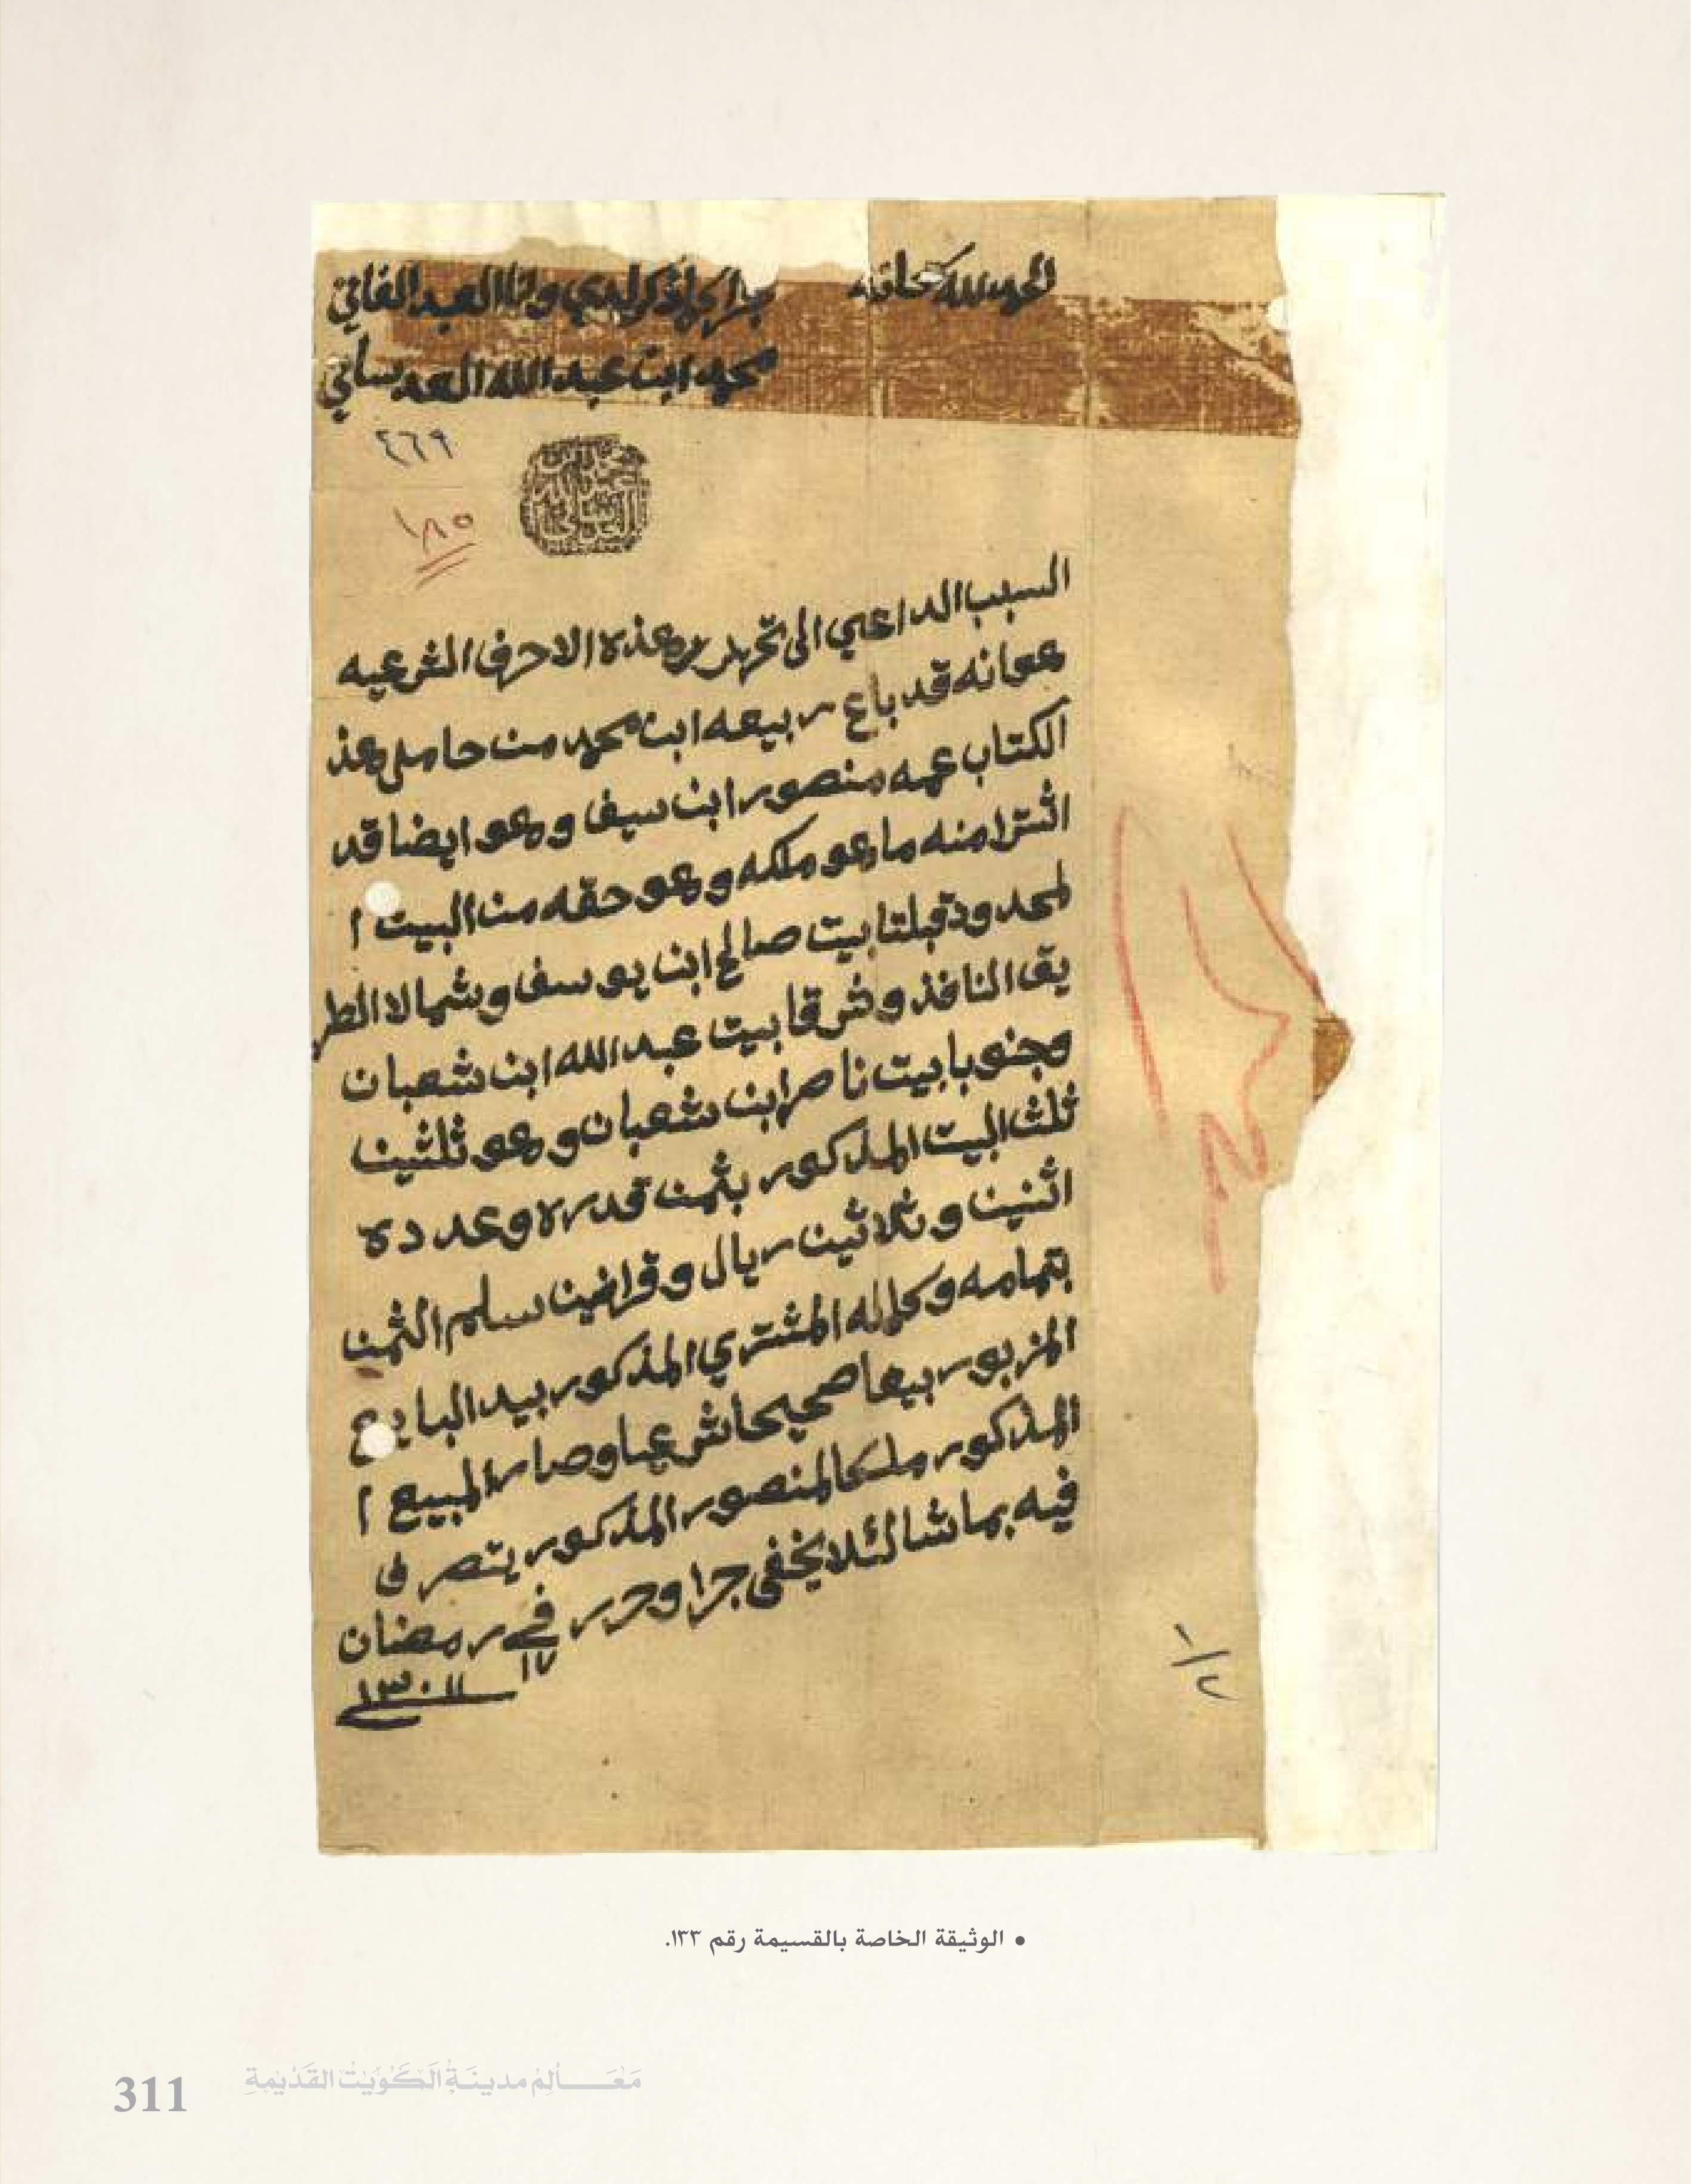 الحمد لله سبحانه
جرا كما ذكر لدي وانا العبد الفاني
محمد ابن عبد الله العدساني
٤٦٩
١٨٥
السبب الداعي الى تحرير هذه الاحرف الشرعيه
هو انه قد باع ربيعه ابن محمد من حامل هذ
الكتاب عمه منصور ابن سيف وهو ايضا قد
اشترا منه ما هو ملكه وهو حقه من البيت ا
لمحدود قبلتا بيت صالح ابن يوسف وشمالا الطر
يق النافذ وشرقا بيت عبد الله ابن شعبان
وجنوبا بيت ناصر ابن شعبان وهو ثلثين
ثلث البيت المذكور بثمن قدره وعدده
اثنين وثلاثين ريال وقرانين سلم الثمن
بتمامه وكماله المشتري المذكور بيد البايع
المزبور بيعا صحيحا شرعيا وصار المبيع ا
المذكور ملكا لمنصور المذكور يتصرف
فيه بما شا لئلا يخفى جرا وحرر في رمضان
١٧ ١٣٠١١
١/٢
• الوثيقة الخاصة بالقسيمة رقم ١٣٣.
311 مَعَالِمْ مدينَةُ الكُوَيْتْ القَدْيْمِةِ